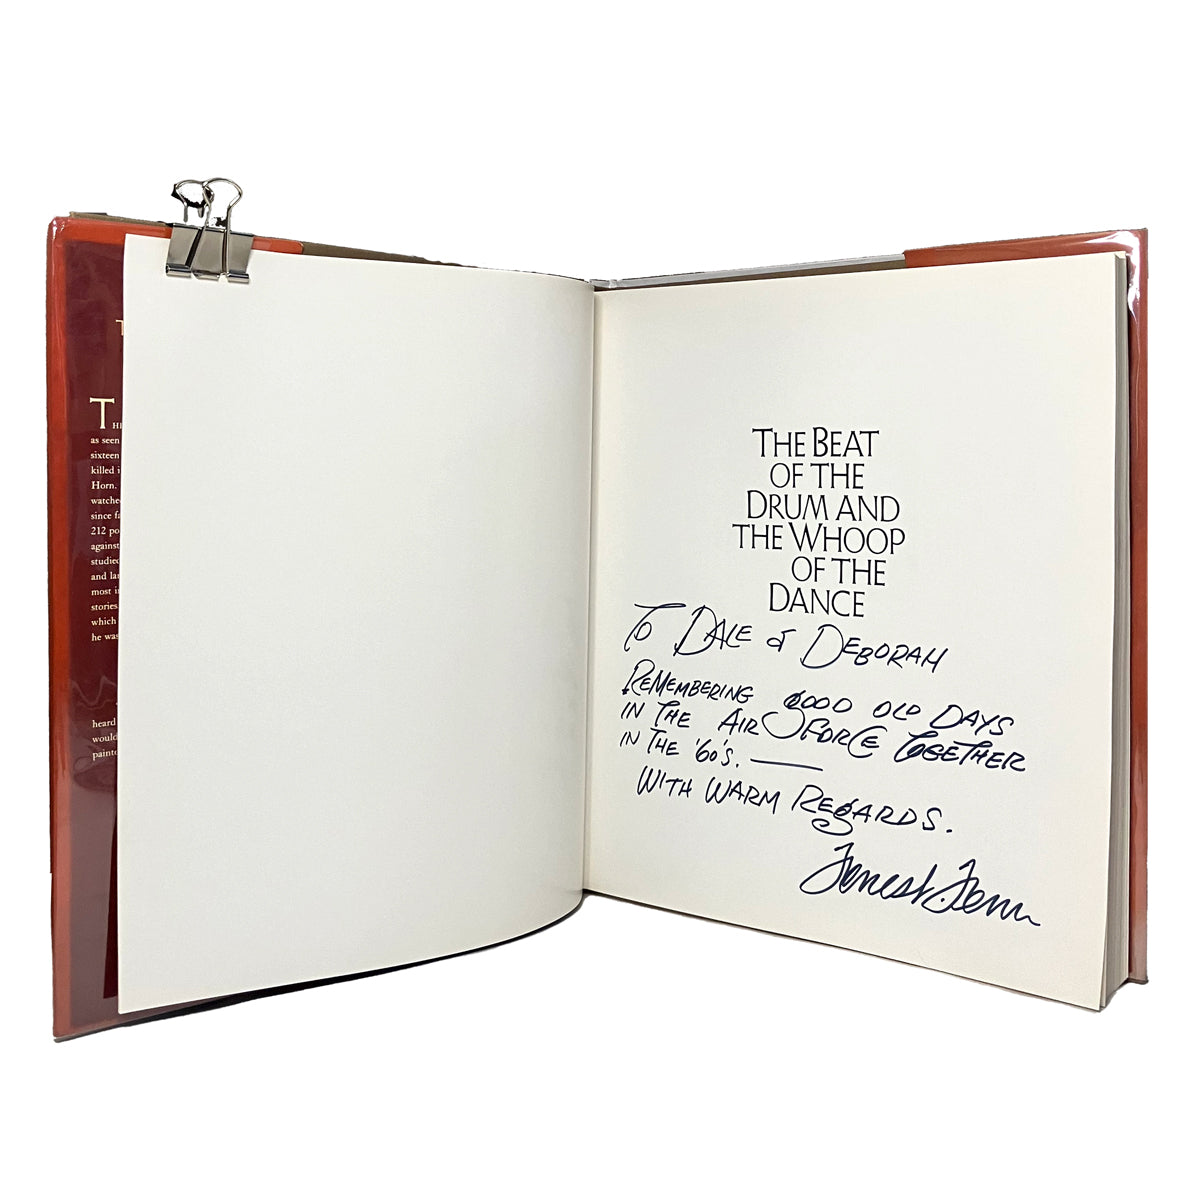 T
THE
as seen
sixteen
killed i
Horn.
watche
since fa
212 po
against
studied
and la
most i
stories
which
he was
heard
would
painte
THE BEAT
OF THE
DRUM AND
THE WHOOP
OF THE
DANCE
TO DALE & DEBORAH
REMEMBERING GOOD OLD DAYS
IN THE AIR FORCE TOGETHER
IN THE '60'S. —
WITH WARM REGARDS.
Forrest Fenn